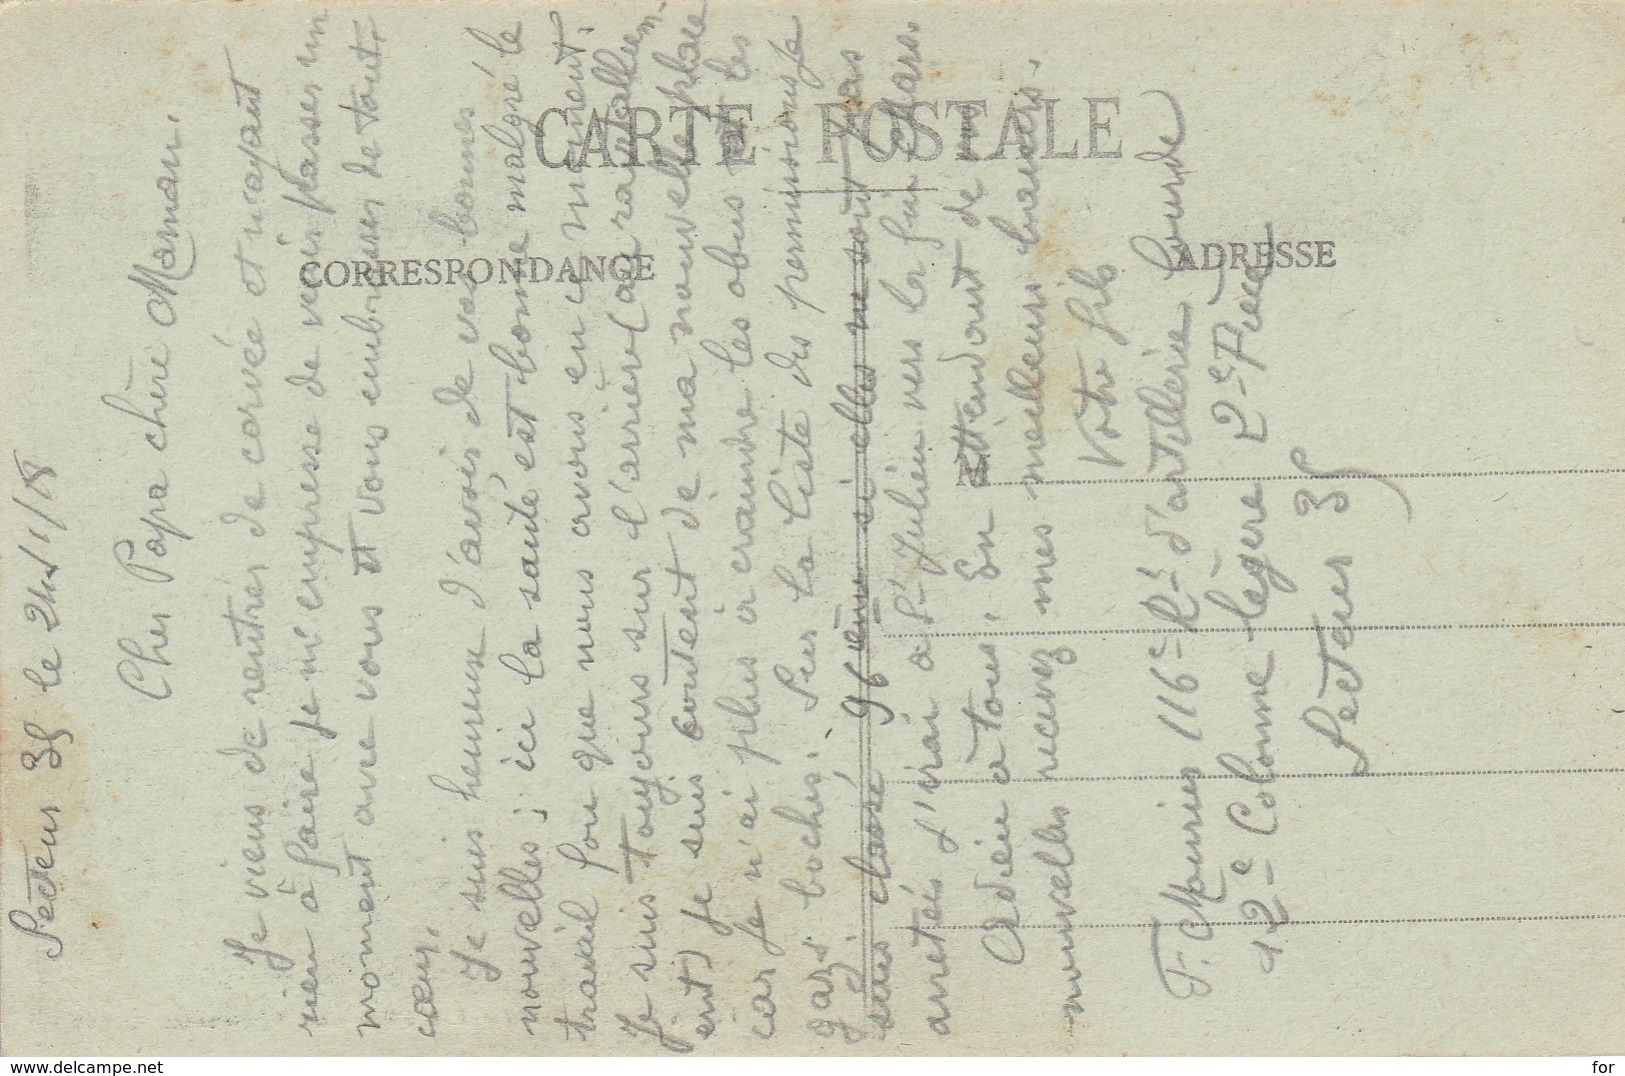 Secteur 38 le 24/1/18
Cher Papa chère Maman.
Je viens de rentrer de corvée et n'ayant
rien à faire je m'empresse de venir passer un
moment avec vous et vous embrasser de tout
cœur.
Je suis heureux d'avoir de vos bonnes
nouvelles ; ici la santé est bonne malgré le
travail fou que nous avons en ce moment.
Je suis toujours sur l'arrière (au ravitaillem-
ent) je suis content de ma nouvelle place
car je n'ai plus à craindre les obus et les
gaz boches. Sur la liste des permissions je
suis classé 96ème si elles ne sont pas
arretées j'irai à St Julien vers la fin Mars.
Adieu à tous. En attendant de vos
nouvelles recevez mes meilleurs baisers.
Votre fils
F. Mourier 116e Rt d'artillerie Lourde
12e Colonne légère 2e Pièce
Secteur 38
CARTE POSTALE
CORRESPONDANCE
ADRESSE
www.delcampe.net
for